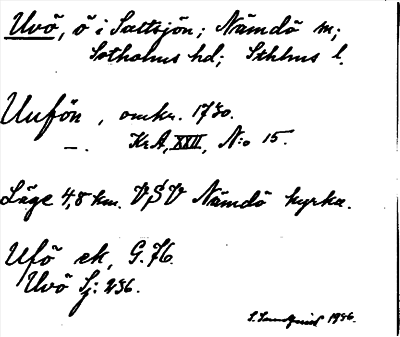 Uvö, ö i Saltsjön; Nämdö sn;
Sotholms hd; Sthlms l.
Uufön, omkr. 1730.
—. KrA, XXII, N:o 15.
Läge 4,8 km. VSV Nämdö kyrka.
Ufö ek, G.76.
Uvö Sj: 236.
S. Sundqvist 1936.